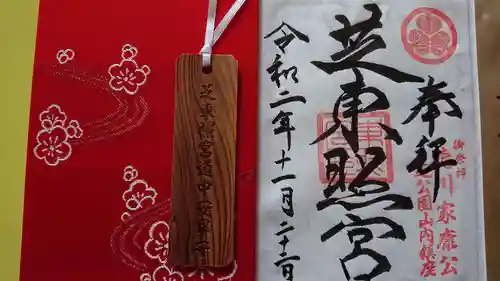 奉拝
御祭神
徳川家康公
公園山内鎮座
芝東照宮
令和二年十一月二十二日
芝東照宮道中安全守